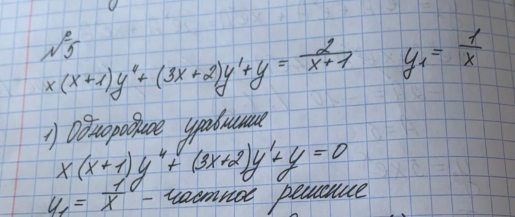 №5
x(x+1)y'' + (3x+2)y' + y = 2/(x+1)   y₁ = 1/x
1) Однородное уравнение
x(x+1)y'' + (3x+2)y' + y = 0
y₁ = 1/x - частное решение